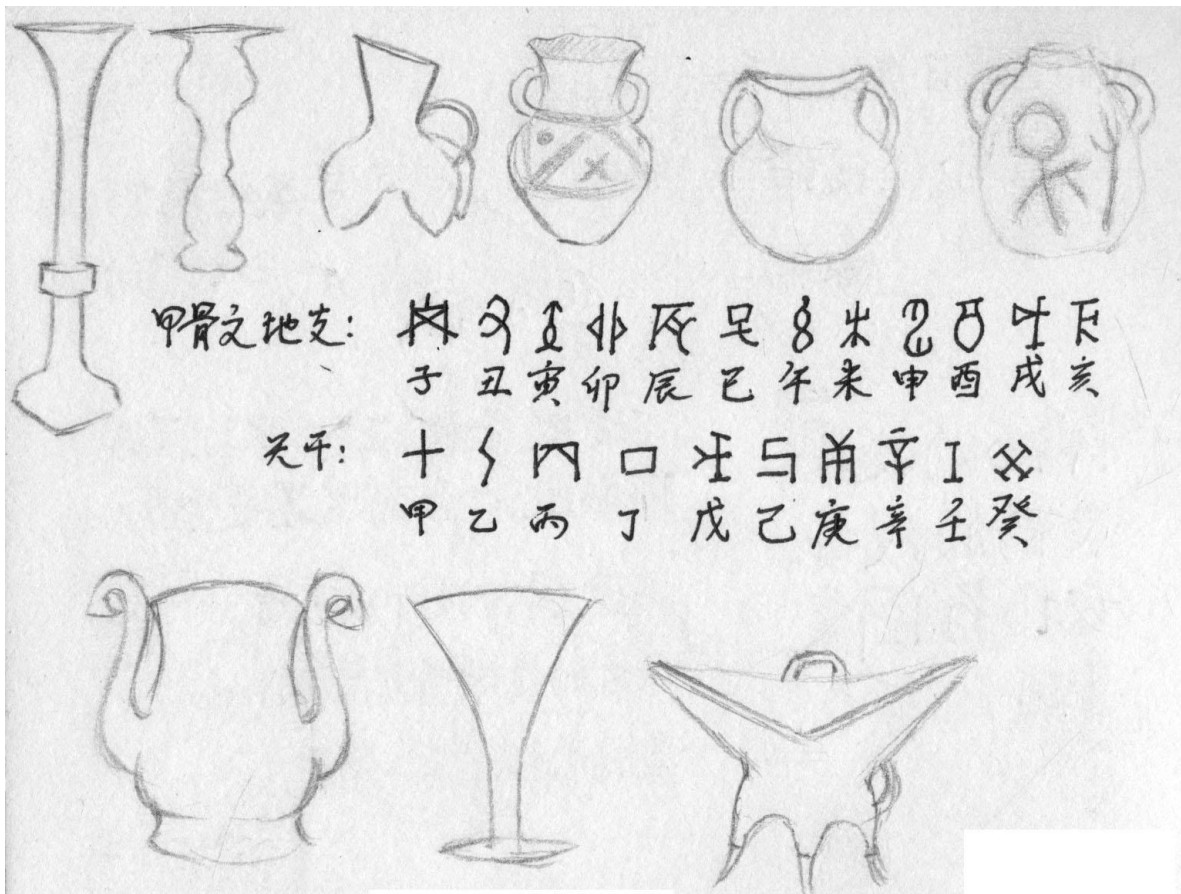 甲骨文地支:
子 丑 寅 卯 辰 巳 午 未 申 酉 戌 亥
天干:
甲 乙 丙 丁 戊 己 庚 辛 壬 癸